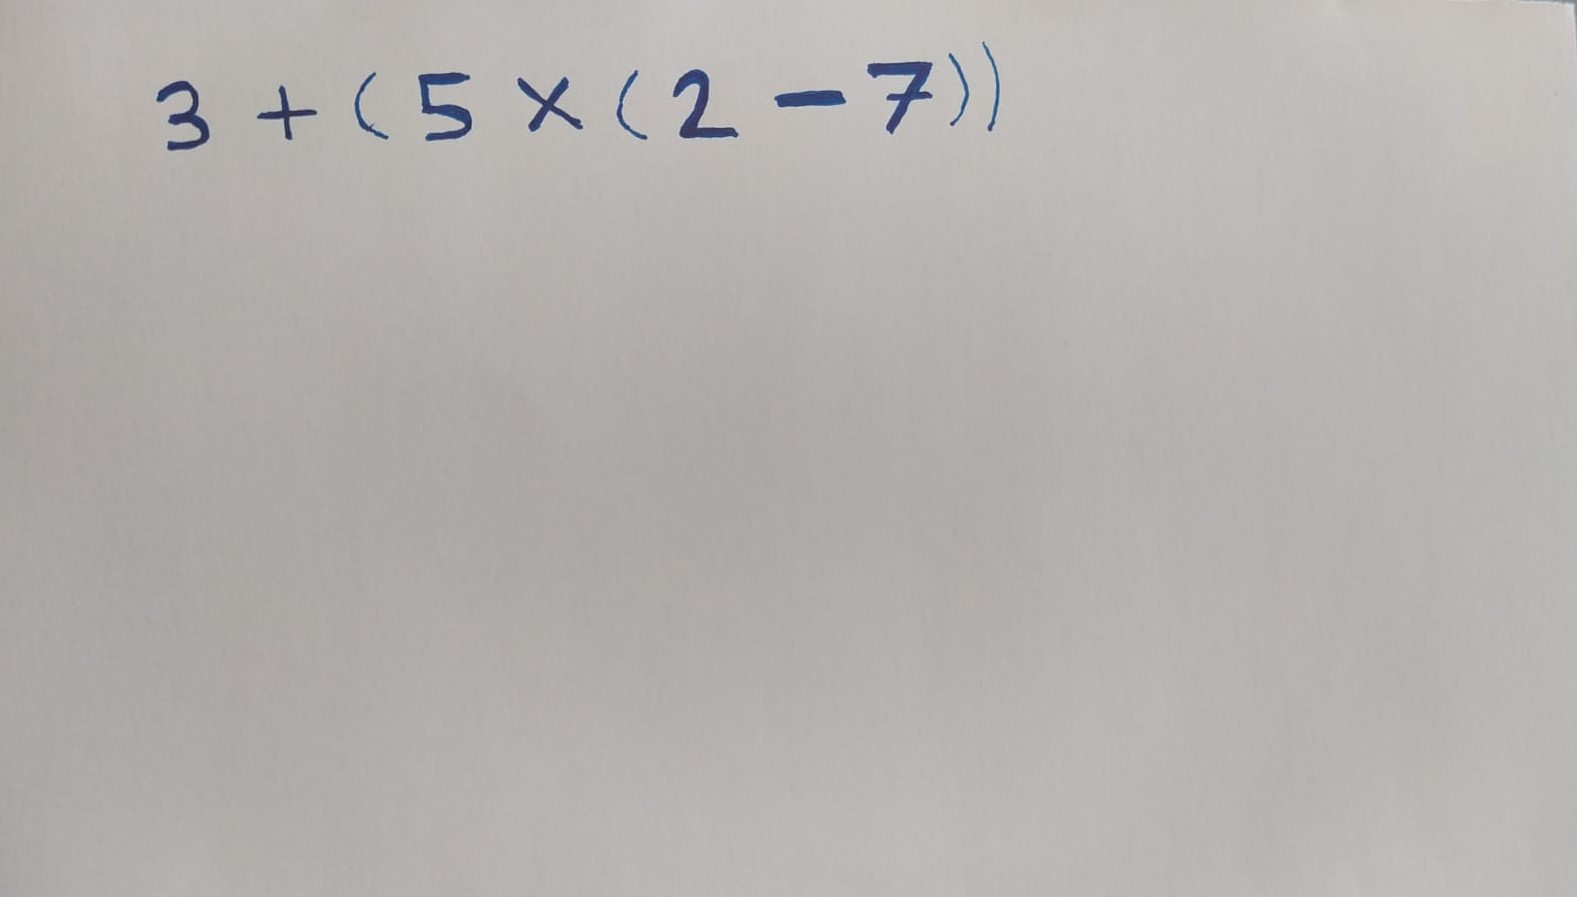 3 + ( 5 × ( 2 - 7 ) )